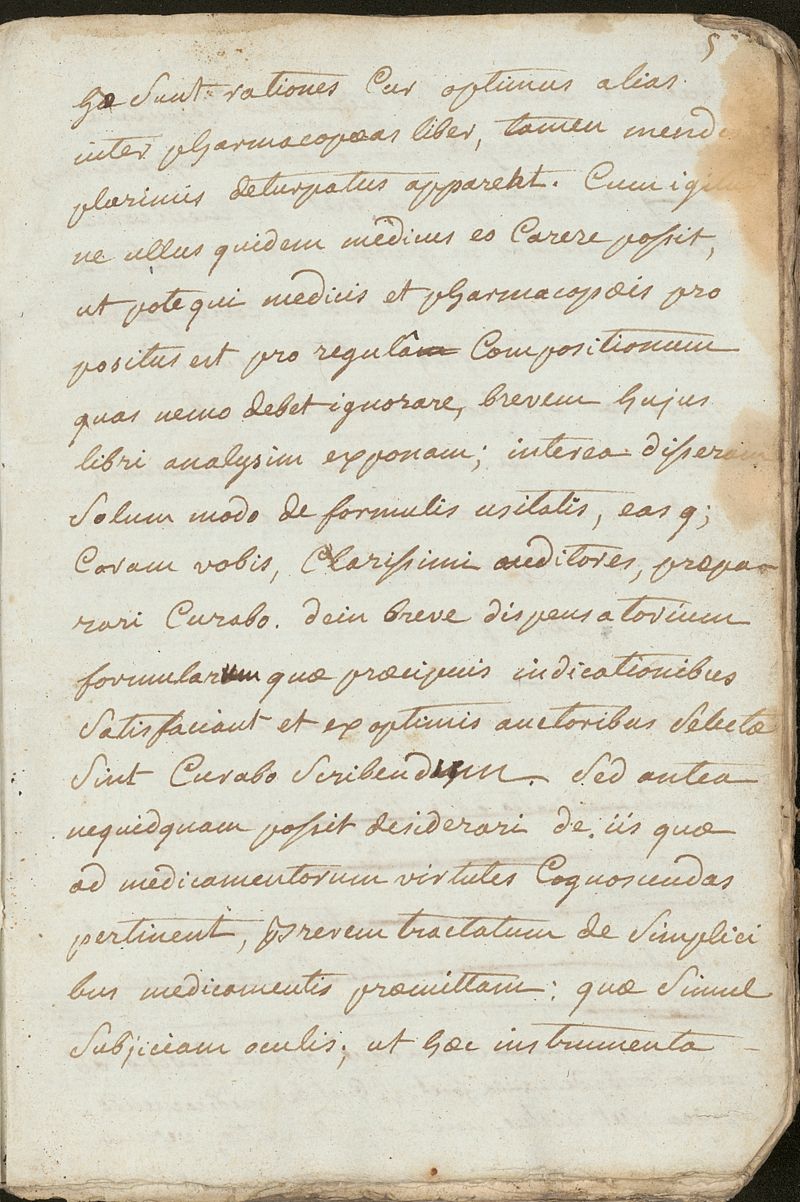 5
hæ sunt rationes cur optimus alias
inter pharmacopæas liber, tamen mend
plurimis deturpatus appareat. Cum igitu
ne ullus quidem medicus eo Carere possit,
ut pote qui medicis et pharmacopæis pro
positus est pro regulâ Compositionum
quas nemo debet ignorare, brevem hujus
libri analysim exponam; interea disseram
Solum modo de formulis usitatis, eas q;
Coram vobis, Clarissimi auditores, præpa-
rari Curabo. dein breve dispensatorium
formularum quæ præcipuis indicationibus
Satisfaciant et ex optimis auctoribus Selectæ
Sint Curabo Scribendum. Sed antea
nequidquam possit desiderari de iis quæ
ad medicamentorum virtutes Cognoscendas
pertinent, Brevem tractatum de Simplici
bus medicamentis præmittam: quæ Simul
Subjiciam oculis; ut hæc instrumenta